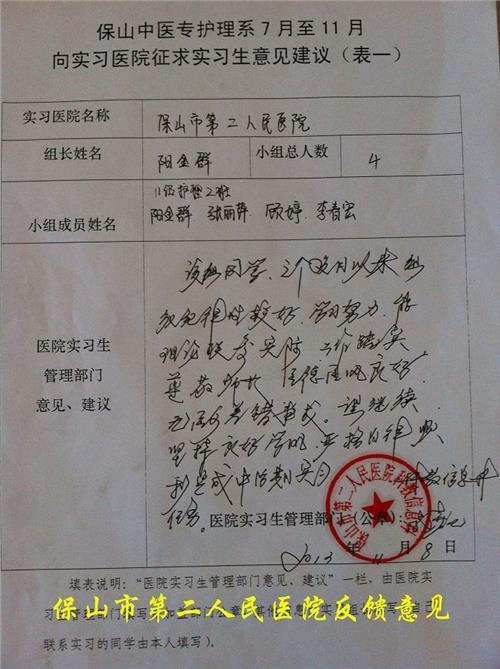 保山中医专护理系7月至11月
向实习医院征求实习生意见建议（表一）
实习医院名称 保山市第二人民医院
组长姓名 阳金群 小组总人数 4
11级护理2班
小组成员姓名 阳金群 张丽萍 顾婷 李春宏
医院实习生
管理部门
意见、建议
该组同学，三个多月以来
组织纪律性较好，学习努力，能
理论联系实际，工作踏实
尊敬师长，医德医风良好，
无医疗差错事故。望继续
坚持良好学风，严格自律，顺
利完成中后期实习
任务。
医院实习生管理部门（公章）：
保山市第二人民医院科教信息科
2013年11月8日
填表说明：“医院实习生管理部门意见、建议”一栏，由医院实
保山市第二人民医院反馈意见
联系实习的同学由本人填写）。